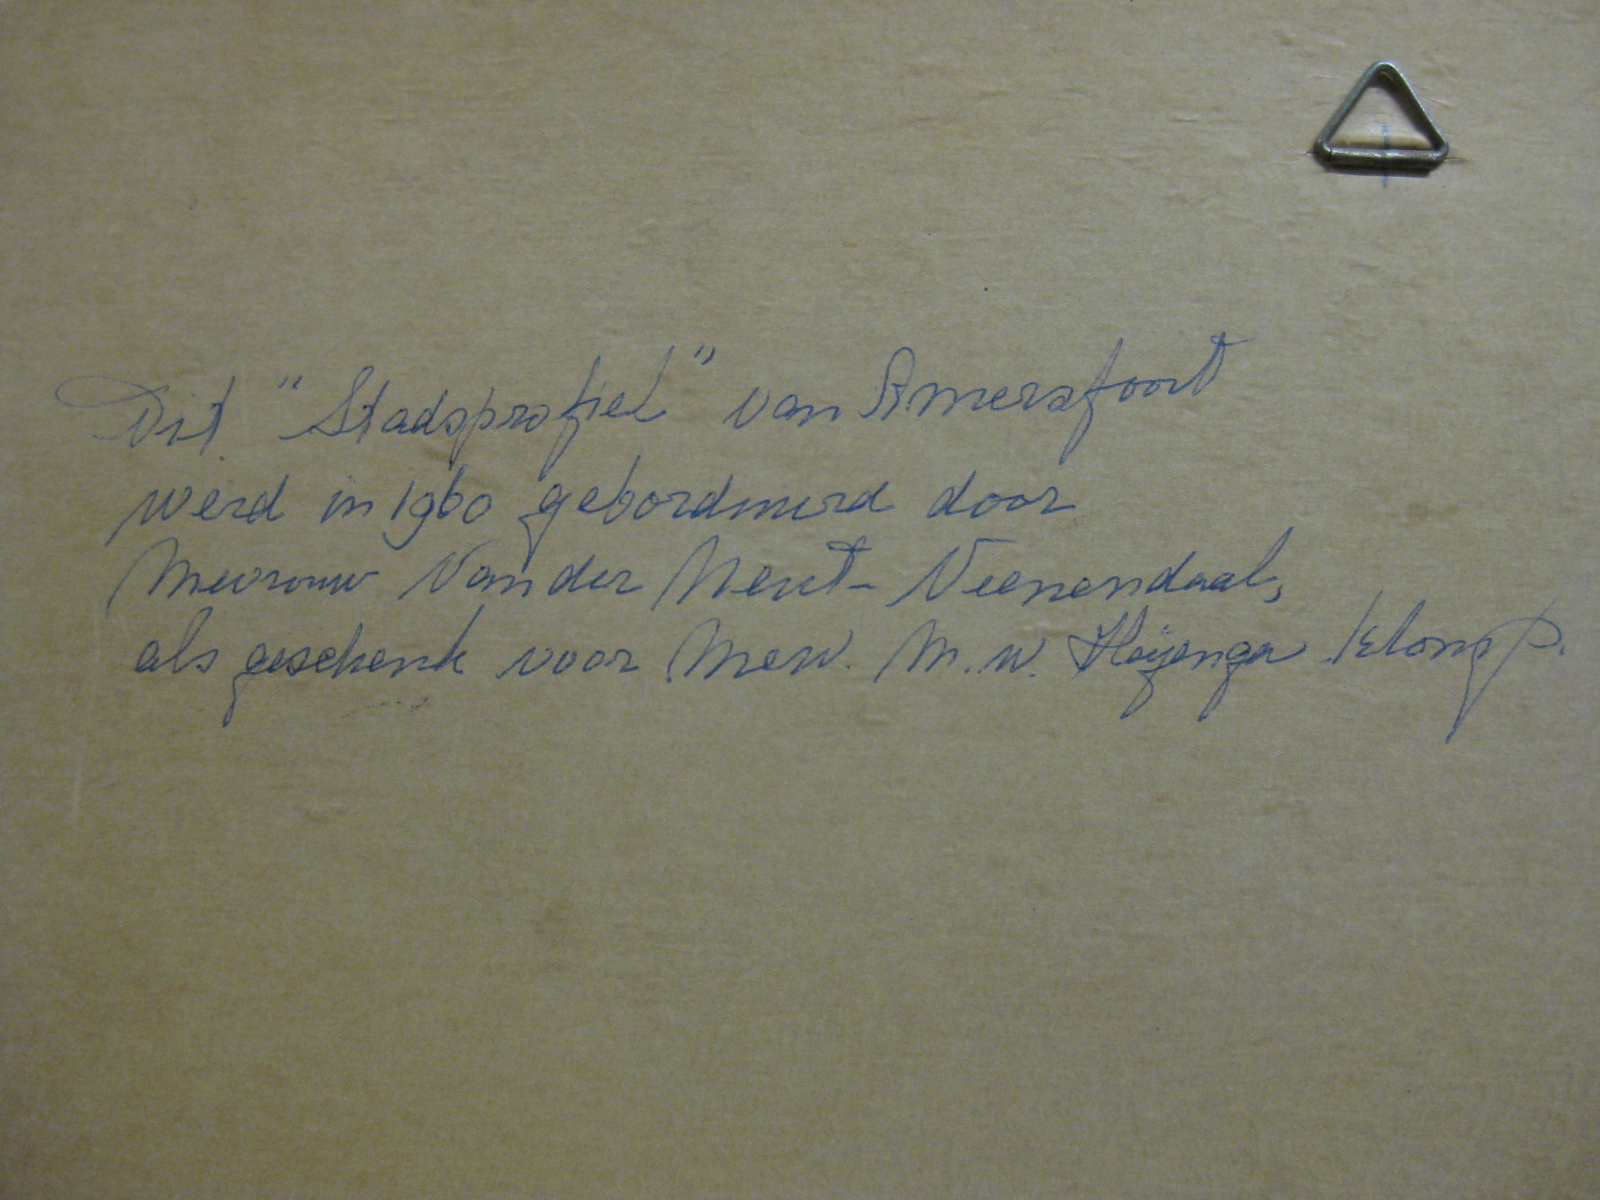 Dit "Stadsprofiel" van Amersfoort
werd in 1960 geborduurd door
Mevrouw Van der Neut - Veenendaal,
als geschenk voor Mevr. M. W. Heÿenga Klomp.